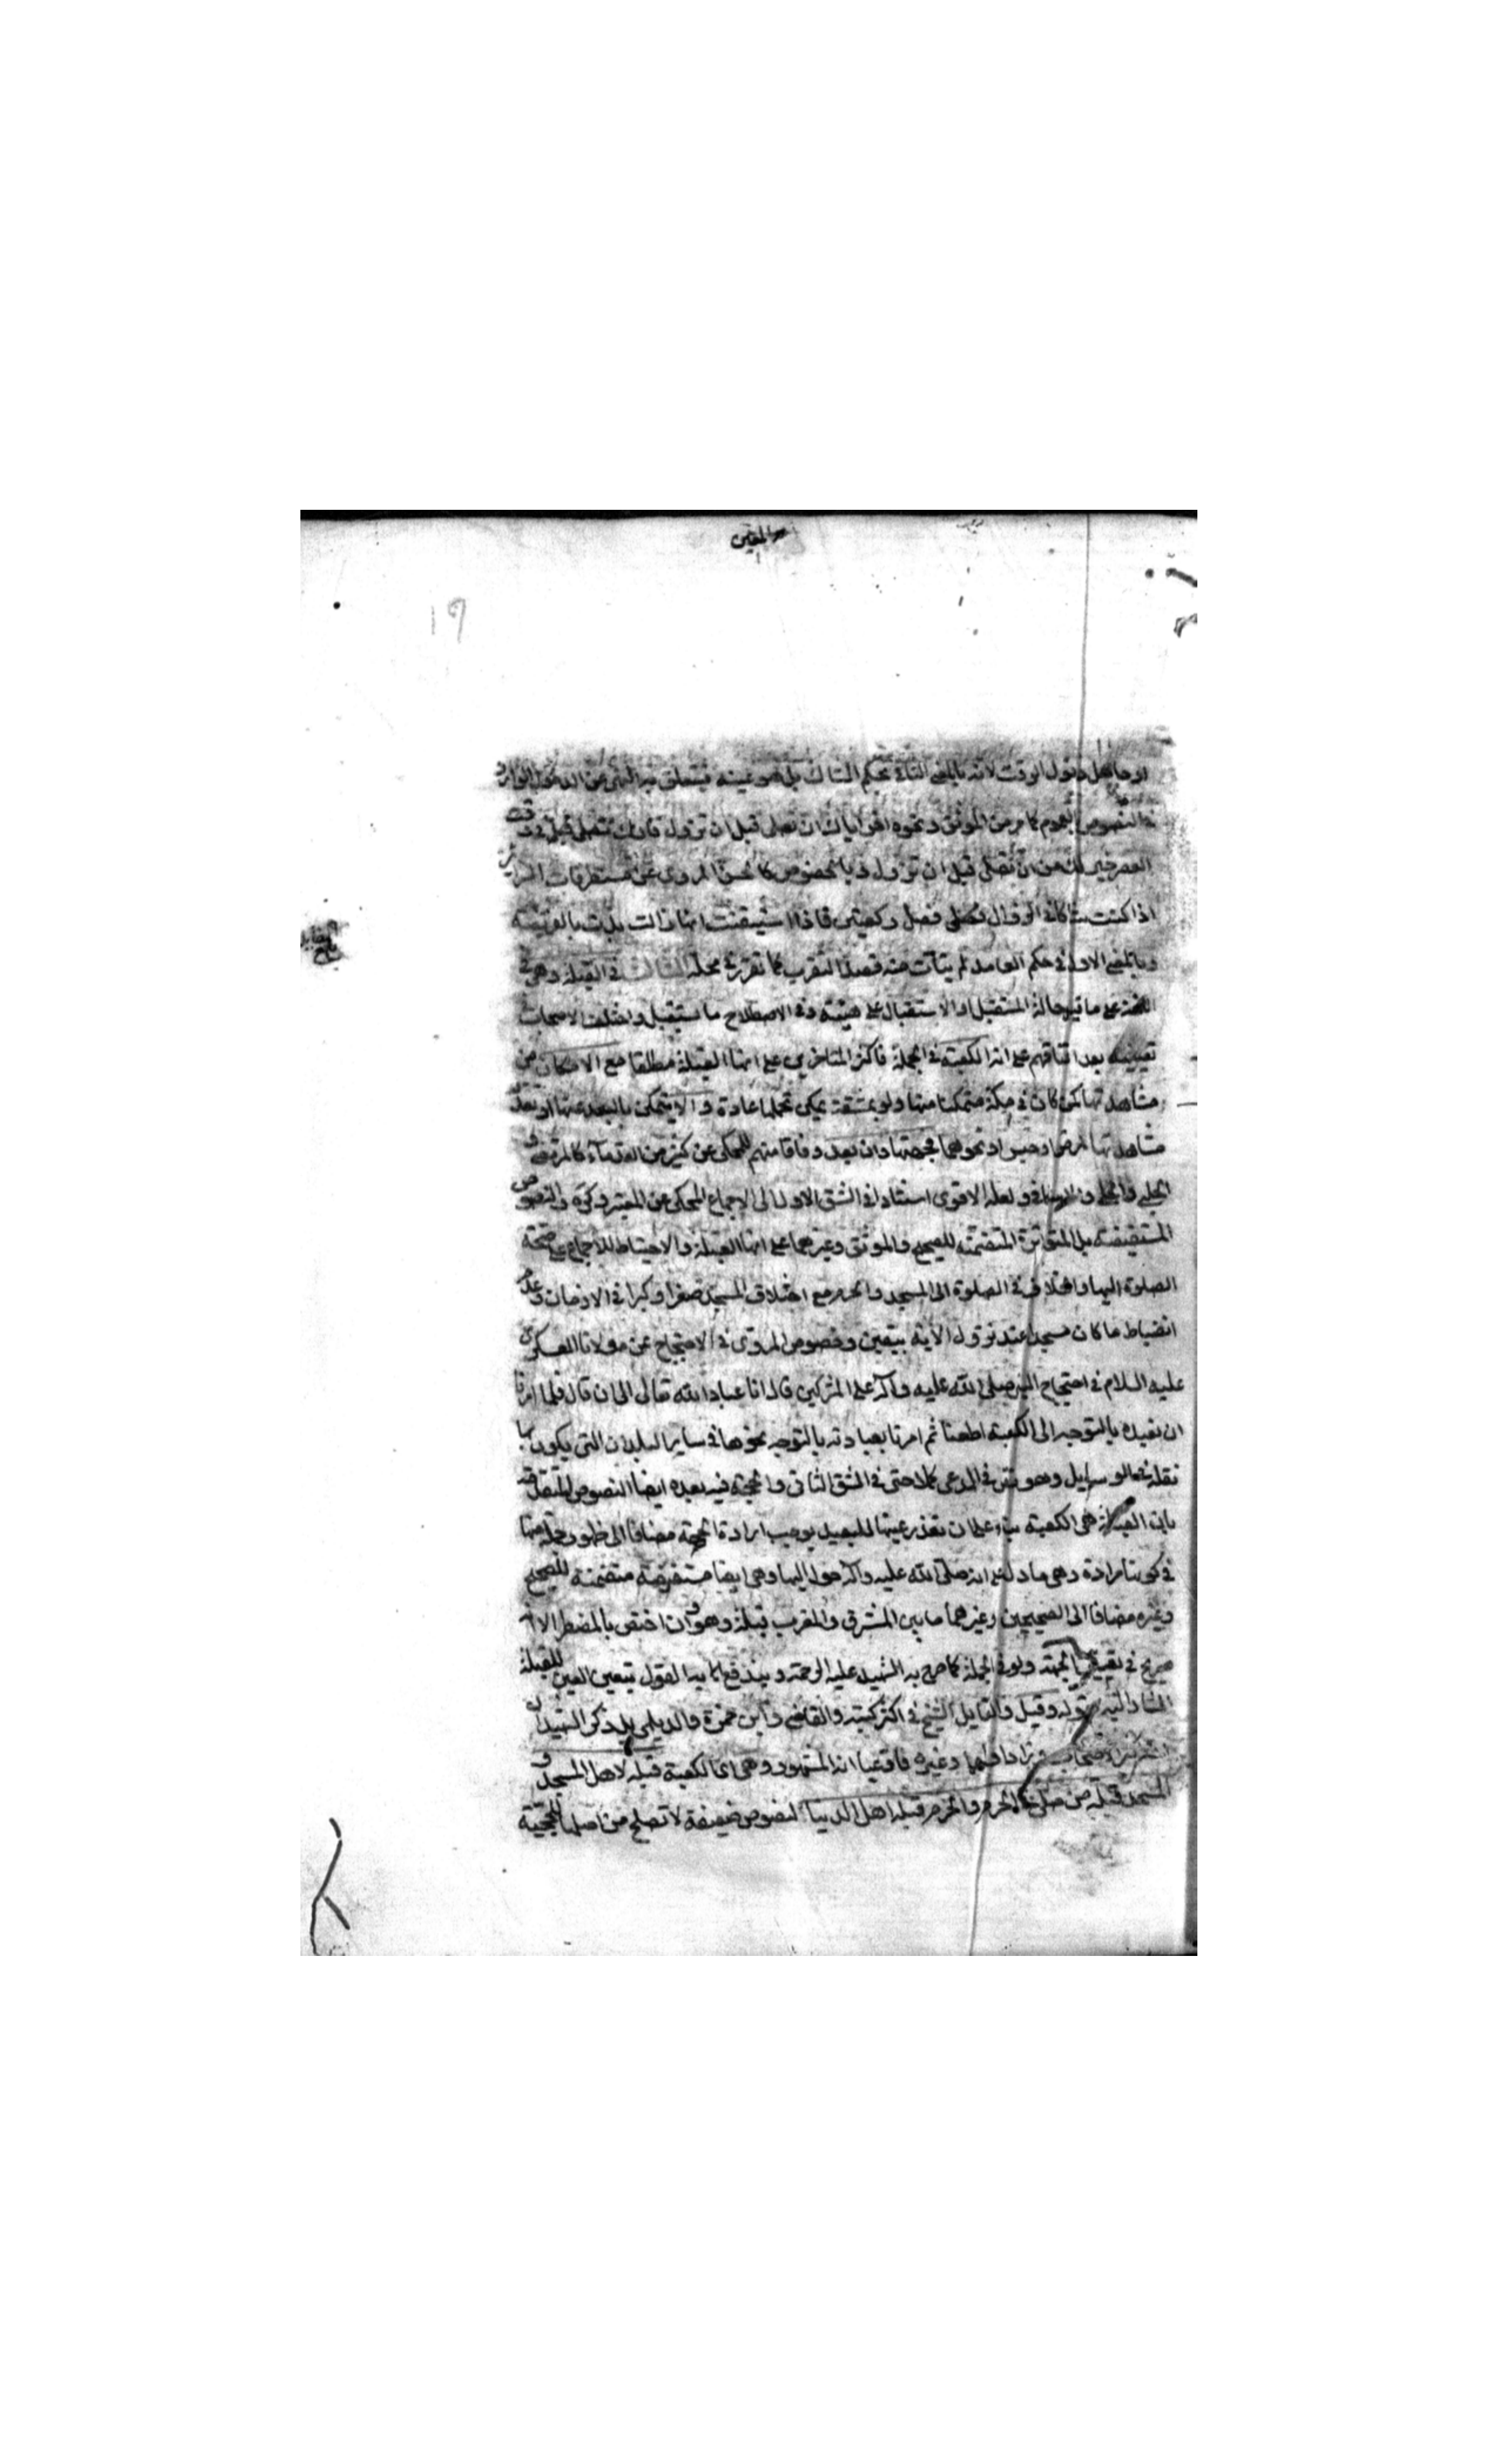 او جاهل دخول الوقت لانه بالمعنى الثاني بحكم الشاك بل هو عينه فيتعلق به النهي عن الدخول الوارد
في النصوص بالعموم كما مر من الموثق ونحوه اخر اياك ان تصلي قبل ان تزول فانك تصلي في وقت
العصر خير لك من ان تصلي قبل ان تزول وبالخصوص كالحسن المروي عن مستطرفات السرائر
اذا كنت شاكا في الزوال فصل ركعتين فاذا استيقنت انها زالت بدات بالفريضة
وبالمعنى الاول في حكم العامد لم يتات منه قصد التقرب كما تقرر في محله الثالث في القبلة وهي في
اللغة على ما قيل حالة المستقبل او الاستقبال على هيئته وفي الاصطلاح ما يستقبل واختلف الاصحاب
تعيينه بعد اتفاقهم على انه الكعبة في الجملة فاكثر المتاخرين على انها القبلة مطلقا مع الامكان من
مشاهدتها كمن كان في مكة متمكنا منها ولو بمشقة يمكن تحملها عادة والا يتمكن بالبعد عنها او تعذر
مشاهدتها لمرض او حبس او نحوهما فجهتها وان بعد وفاقا منهم للمحكي عن كثير من القدماء كالمرتضى و
الحلبي والحلي ولعله الاقوى استنادا في الشق الاول الى الاجماع المحكي عن المعتبر وكره والنصوص
المستفيضة بل المتواترة المتضمنة للصحيح والموثق وغيرهما على انها القبلة والاحتياط للاجماع على صحة
الصلوة اليها واختلاف في الصلوة الى المسجد والحرم مع اختلاف المسجد صغرا وكبرا في الازمان وعدم
انضباط ما كان مسجدا عند نزول الاية بيقين وخصوص المروي في الاحتجاج عن مولانا العسكري
عليه السلام في احتجاج النبي صلى الله عليه وآله على المشركين قال انا عباد الله تعالى الى ان قال فلما امرنا
ان نعبده بالتوجه الى الكعبة اطعنا ثم امرنا بعبادته بالتوجه نحوها في ساير البلدان التي يكون بها
نقله في الوسايل وهو نص في المدعى كملا حتى في الشق الثاني والحجة فيه بعده ايضا النصوص المتقدمة
بان القبلة هي الكعبة بناء على ان تعذر عينها للبعيد يوجب ارادة الجهة مضافا الى ظهور جملة منها
في كونها مرادة وهي ما دل على انه صلى الله عليه وآله حول اليها وهي ايضا مستفيضة متضمنة للصحيح
وغيره مضافا الى الصحيحين وغيرهما ما بين المشرق والمغرب قبلة وهو وان اختص بالمضطر الا انه
صريح في الجهة ولو في الجملة كما صرح به الشهيد عليه الرحمة ويندفع به القول بتعيين العين للقبلة
المشار اليه بقوله وقيل والقايل الشيخ في اكثر كتبه والقاضي وابن حمزة والديلمي بل ذكر الشهيدان
وزادا وغيره فادعيا انه المشهور وهي الكعبة قبلة لاهل المسجد و
المسجد قبلة من صلى في الحرم والحرم قبلة اهل الدنيا لنصوص ضعيفة لا تصلح من اصلها للحجية